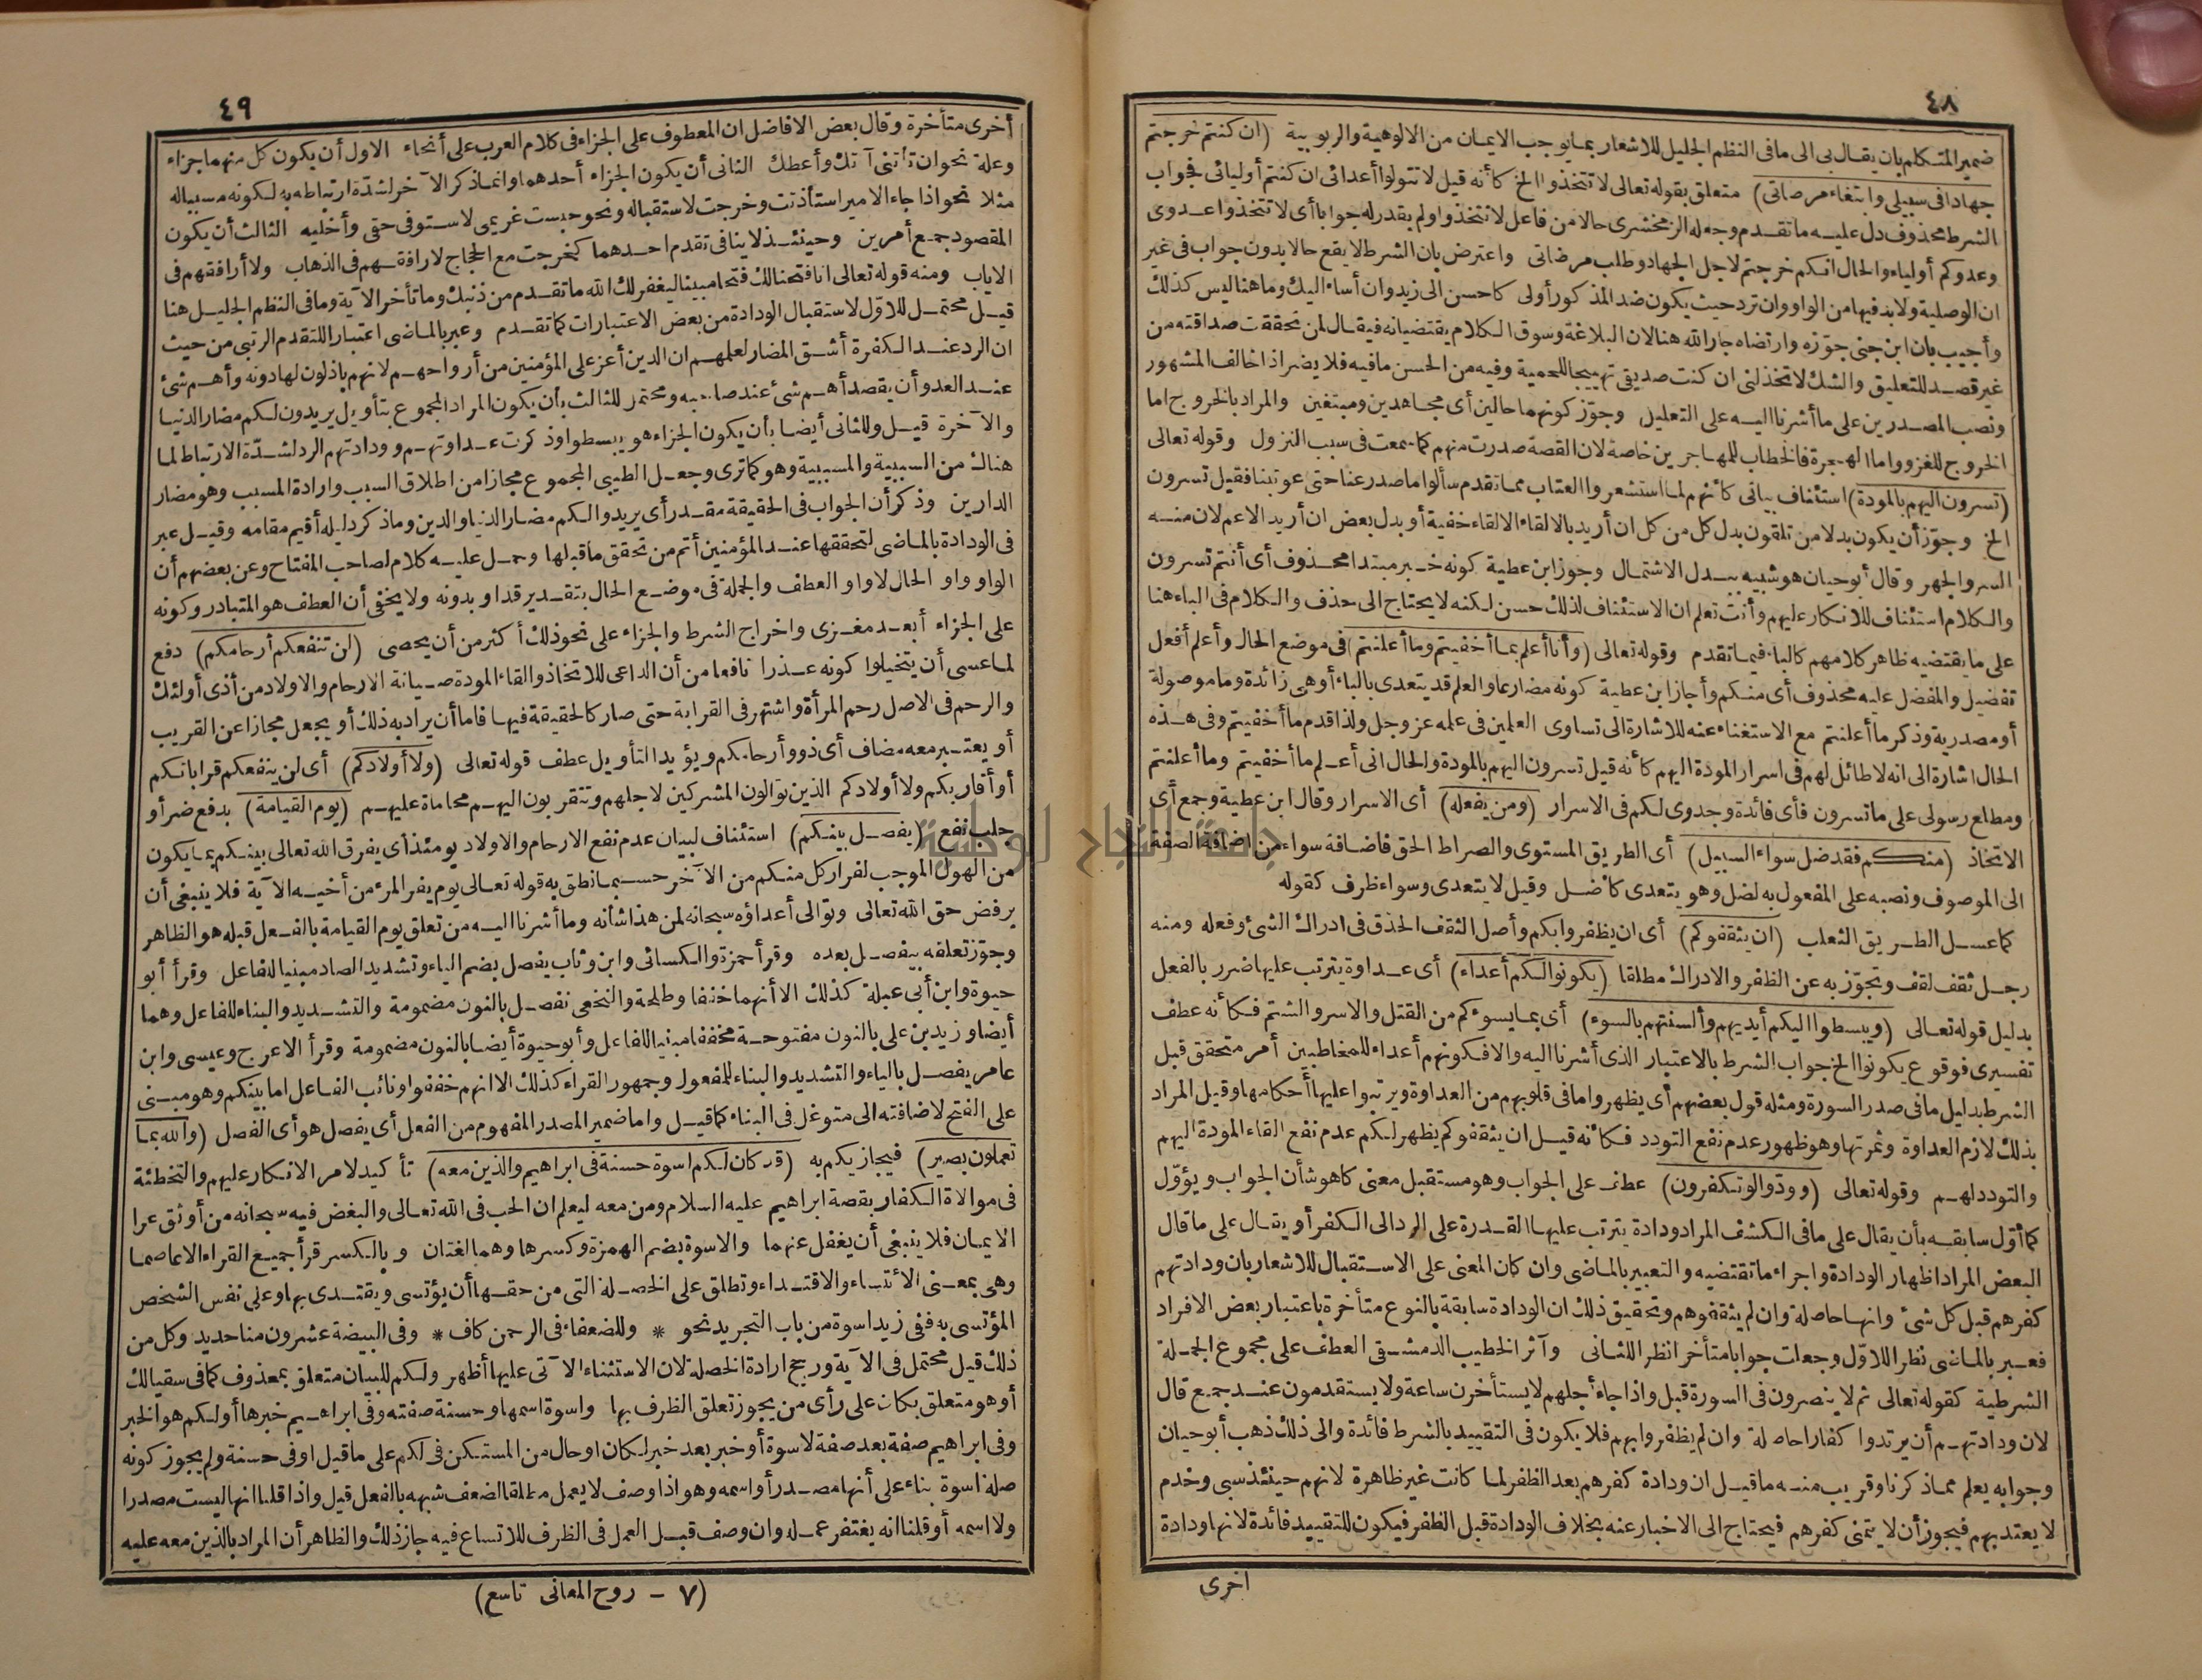 ٤٨
ضمير المتكلم بان يقال بى الى مافى النظم الجليل للاشعار بما يوجب الايمان من الالوهية والربوبية (ان كنتم خرجتم
جهادا فى سبيلى وابتغاء مرضاتى) متعلق بقوله تعالى لا تتخذوا الخ كأنه قيل لا تتولوا أعدائى ان كنتم أوليائى فجواب
الشرط محذوف دل عليه ما تقدم وجعله الزمخشرى حالا من فاعل لا تتخذوا ولم يقدر له جوابا أى لا تتخذوا عدوى
وعدوكم أولياء والحال انكم خرجتم لاجل الجهاد وطلب مرضاتى واعترض بان الشرط لا يقع حالا بدون جواب فى غير
ان الوصلية ولابد فيها من الواو وان ترد حيث يكون ضد المذكور أولى كاحسن الى زيد وان أساء اليك وما هنا ليس كذلك
وأجيب بان ابن جنى جوّزه وارتضاه جار الله هنا لان البلاغة وسوق الكلام يقتضيانه فيقال لمن تحققت صداقته من
غير قصد للتعليق والشك لا تخذلنى ان كنت صديقى تهييجا للحمية وفيه من الحسن مافيه فلا يضر اذا خالف المشهور
ونصب المصدرين على ما أشرنا اليه على التعليل وجوّز كونهما حالين أى مجاهدين ومبتغين والمراد بالخروج اما
الخروج للغزو واما الهجرة فالخطاب للمهاجرين خاصة لان القصة صدرت منهم كما سمعت فى سبب النزول وقوله تعالى
(تسرون اليهم بالمودة) استئناف بيانى كأنهم لما استشعروا العتاب مما تقدم سألوا ما صدر عنا حتى عوتبنا فقيل تسرون
الخ وجوّز أن يكون بدلا من تلقون بدل كل من كل ان أريد بالالقاء الالقاء خفية أو بدل بعض ان أريد الاعم لان منه
السر والجهر وقال أبو حيان هو شبيه ببدل الاشتمال وجوز ابن عطية كونه خبر مبتدا محذوف أى أنتم تسرون
والكلام استئناف للانكار عليهم وأنت تعلم ان الاستئناف لذلك حسن لكنه لا يحتاج الى حذف والكلام فى الباء هنا
على ما يقتضيه ظاهر كلامهم كالباء فيما تقدم وقوله تعالى (وأنا أعلم بما أخفيتم وما أعلنتم) فى موضع الحال وأعلم أفعل
تفضيل والمفضل عليه محذوف أى منكم وأجاز ابن عطية كونه مضارعا والعلم قد يتعدى بالباء أو هى زائدة وما موصولة
أو مصدرية وذكر ما أعلنتم مع الاستغناء عنه للاشارة الى تساوى العلمين فى علمه عز وجل ولذا قدم ما أخفيتم وفى هذه
الحال اشارة الى انه لا طائل لهم فى اسرار المودة اليهم كأنه قيل تسرون اليهم بالمودة والحال انى أعلم ما أخفيتم وما أعلنتم
ومطلع رسولى على ما تسرون فأى فائدة وجدوى لكم فى الاسرار (ومن يفعله) أى الاسرار وقال ابن عطية وجمع أى
الاتخاذ (منكم فقد ضل سواء السبيل) أى الطريق المستوى والصراط الحق فاضافة سواء من اضافة الصفة
الى الموصوف ونصبه على المفعول به لضل وهو يتعدى كأضل وقيل لا يتعدى وسواء ظرف كقوله
كما عسل الطريق الثعلب (ان يثقفوكم) أى ان يظفروا بكم وأصل الثقف الحذق فى ادراك الشئ وفعله ومنه
رجل ثقف لقف وتجوّز به عن الظفر والادراك مطلقا (يكونوا لكم أعداء) أى عداوة يترتب عليها ضرر بالفعل
بدليل قوله تعالى (ويبسطوا اليكم أيديهم وألسنتهم بالسوء) أى بما يسوءكم من القتل والاسر والشتم فكأنه عطف
تفسيرى فوقوع يكونوا الخ جواب الشرط بالاعتبار الذى أشرنا اليه والا فكونهم أعداء للمخاطبين أمر متحقق قبل
الشرط بدليل مافى صدر السورة ومثله قول بعضهم أى يظهروا مافى قلوبهم من العداوة ويرتبوا عليها أحكامها وقيل المراد
بذلك لازم العداوة وثمرتها وهو ظهور عدم نفع التودد فكأنه قيل ان يثقفوكم يظهر لكم عدم نفع القاء المودة اليهم
والتودد لهم وقوله تعالى (وودّوا لو تكفرون) عطف على الجواب وهو مستقبل معنى كما هو شأن الجواب ويؤوّل
كما أوّل سابقه بأن يقال على مافى الكشف المراد ودادة يترتب عليها القدرة على الرد الى الكفر أو يقال على ما قال
البعض المراد اظهار الودادة واجراء ما تقتضيه والتعبير بالماضى وان كان المعنى على الاستقبال للاشعار بان ودادتهم
كفرهم قبل كل شئ وانها حاصلة وان لم يثقفوهم وتحقيق ذلك ان الودادة سابقة بالنوع متأخرة باعتبار بعض الافراد
فعبر بالماضى نظرا للاوّل وجعلت جوابا متأخرا نظرا للثانى وآثر الخطيب الدمشقى العطف على مجموع الجملة
الشرطية كقوله تعالى ثم لا ينصرون فى السورة قبل واذا جاء أجلهم لا يستأخرون ساعة ولا يستقدمون عند جميع قال
لان ودادتهم أن يرتدوا كفارا حاصلة وان لم يظفروا بهم فلا يكون فى التقييد بالشرط فائدة والى ذلك ذهب أبو حيان
وجوابه يعلم مما ذكرنا وقريب منه ما قيل ان ودادة كفرهم بعد الظفر لما كانت غير ظاهرة لانهم حينئذ سبى وخدم
لا يعتد بهم فيجوز أن لا يتمنى كفرهم فيحتاج الى الاخبار عنه بخلاف الودادة قبل الظفر فيكون للتقييد فائدة لانها ودادة
اخرى
٤٩
أخرى متأخرة وقال بعض الافاضل ان المعطوف على الجزاء فى كلام العرب على أنحاء الاول أن يكون كل منهما جزاء
وعلة نحو ان تأتنى آتك وأعطك الثانى أن يكون الجزاء أحدهما وانما ذكر الآخر لشدة ارتباطه به لكونه مسببا له
مثلا نحو اذا جاء الامير استأذنت وخرجت لاستقباله ونحو حبست غريمى لاستوفى حقى وأخليه الثالث أن يكون
المقصود جمع أمرين وحينئذ لا ينافى تقدم احدهما كخرجت مع الحجاج لارافقهم فى الذهاب ولا أرافقهم فى
الاياب ومنه قوله تعالى انا فتحنا لك فتحا مبينا ليغفر لك الله ما تقدم من ذنبك وما تأخر الآية وما فى النظم الجليل هنا
قيل محتمل للاوّل لاستقبال الودادة من بعض الاعتبارات كما تقدم وعبر بالماضى اعتبارا للتقدم الرتبى من حيث
ان الرد عند الكفرة أشق المضار لعلمهم ان الدين أعز على المؤمنين من أرواحهم لانهم باذلون لها دونه وأهم شئ
عند العدو أن يقصد أهم شئ عند صاحبه ومحتمل للثالث بأن يكون المراد المجموع بتأويل يريدون لكم مضار الدنيا
والآخرة قيل وللثانى أيضا بأن يكون الجزاء هو يبسطوا وذكرت عداوتهم وودادتهم الرد لشدّة الارتباط لما
هناك من السببية والمسببية وهو كما ترى وجعل الطيبى المجموع مجازا من اطلاق السبب وارادة المسبب وهو مضار
الدارين وذكر أن الجواب فى الحقيقة مقدر أى يريدوا لكم مضار الدنيا والدين وماذكر دليله أقيم مقامه وقيل عبر
فى الودادة بالماضى لتحققها عند المؤمنين أتم من تحقق ما قبلها وحمل عليه كلام لصاحب المفتاح وعن بعضهم أن
الواو واو الحال لا واو العطف والجملة فى موضع الحال بتقدير قد او بدونه ولا يخفى أن العطف هو المتبادر وكونه
على الجزاء أبعد مغزى واخراج الشرط والجزاء على نحو ذلك أكثر من أن يحصى (لن تنفعكم أرحامكم) دفع
لما عسى أن يتخيلوا كونه عذرا نافعا من أن الداعى للاتخاذ والقاء المودة صيانة الارحام والاولاد من أذى أولئك
والرحم فى الاصل رحم المرأة واشتهر فى القرابة حتى صار كالحقيقة فيها فاما أن يراد به ذلك أو يجعل مجازا عن القريب
أو يعتبر معه مضاف أى ذوو أرحامكم ويؤيد التأويل عطف قوله تعالى (ولا أولادكم) أى لن ينفعكم قراباتكم
أو أقاربكم ولا أولادكم الذين توالون المشركين لاجلهم وتتقربون اليهم محاماة عليهم (يوم القيامة) بدفع ضر أو
جلب نفع (يفصل بينكم) استئناف لبيان عدم نفع الارحام والاولاد يومئذ أى يفرق الله تعالى بينكم بما يكون
من الهول الموجب لفرار كل منكم من الآخر حسبما نطق به قوله تعالى يوم يفر المرء من أخيه الآية فلا ينبغى أن
يرفض حق الله تعالى وتوالى أعداؤه سبحانه لمن هذا شأنه وما أشرنا اليه من تعلق يوم القيامة بالفعل قبله هو الظاهر
وجوّز تعلقه بيفصل بعده وقرأ حمزة والكسائى وابن وثاب يفصل بضم الياء وتشديد الصاد مبنيا للفاعل وقرأ أبو
حيوة وابن أبى عبلة كذلك الا أنهما خففا وطلحة والنخعى نفصل بالنون مضمومة والتشديد والبناء للفاعل وهما
أيضا وزيد بن على بالنون مفتوحة مخففا مبنيا للفاعل وأبو حيوة أيضا بالنون مضمومة وقرأ الاعرج وعيسى وابن
عامر يفصل بالياء والتشديد والبناء للمفعول وجمهور القراء كذلك الا انهم خففوا ونائب الفاعل اما بينكم وهو مبنى
على الفتح لاضافته الى متوغل فى البناء كما قيل واما ضمير المصدر المفهوم من الفعل أى يفصل هو أى الفصل (والله بما
تعملون بصير) فيجازيكم به (قد كان لكم اسوة حسنة فى ابراهيم والذين معه) تأكيد لامر الانكار عليهم والتخطئة
فى موالاة الكفار بقصة ابراهيم عليه السلام ومن معه ليعلم ان الحب فى الله تعالى والبغض فيه سبحانه من أوثق عرا
الايمان فلا ينبغى أن يغفل عنهما والاسوة بضم الهمزة وكسرها وهما لغتان وبالكسر قرأ جميع القراء الا عاصما
وهى بمعنى الائتساء والاقتداء وتطلق على الخصلة التى من حقها أن يؤتسى ويقتدى بها وعلى نفس الشخص
المؤتسى به ففى زيد اسوة من باب التجريد نحو * وللضعفاء فى الرحمن كاف * وفى البيضة عشرون منا حديد وكل من
ذلك قيل محتمل فى الآية ورجح ارادة الخصلة لان الاستثناء الآتى عليها أظهر ولكم للبيان متعلق بمحذوف كما فى سقيا لك
أو هو متعلق بكان على رأى من يجوز تعلق الظرف بها واسوة اسمها وحسنة صفته وفى ابراهيم خبرها أو لكم هو الخبر
وفى ابراهيم صفة بعد صفة لاسوة أو خبر بعد خبر لكان او حال من المستكن فى لكم على ما قيل او فى حسنة ولم يجوز كونه
صلة اسوة بناء على أنها مصدر أو اسمه وهو اذا وصف لا يعمل مطلقا لضعف شبهه بالفعل قيل واذا قلنا انها ليست مصدرا
ولا اسمه أو قلنا انه يغتفر عمله وان وصف قبل العمل فى الظرف للاتساع فيه جاز ذلك والظاهر أن المراد بالذين معه عليه
(٧ – روح المعانى تاسع)
جامعة النجاح الوطنية